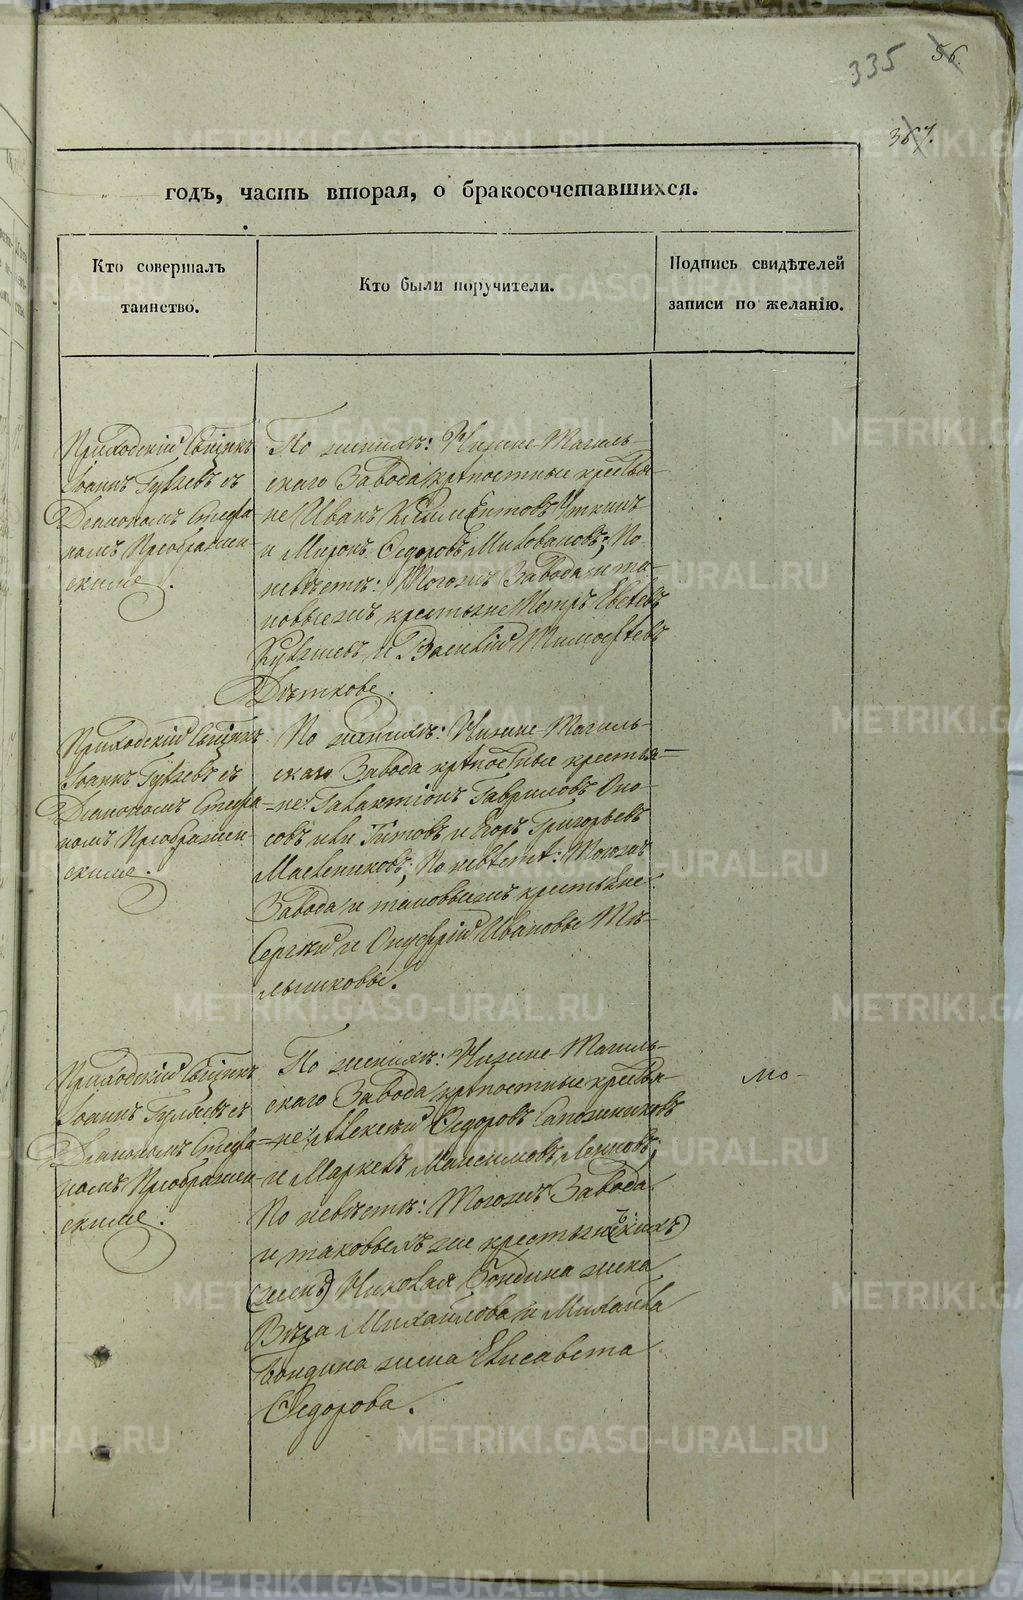 335
56.
367.
годъ, часть вторая, о бракосочетавшихся.
Кто совершалъ
таинство.
Кто были поручители.
Подпись свидѣтелей
записи по желанію.
Приходскій Свщнкъ
Іоаннъ Гуляевъ съ
Діакономъ Стефа
номъ Преображен
скимъ.
По женихѣ: Нижне Тагиль-
скаго Завода крѣпостные крестья-
не Иванъ Климентовъ Уткинъ
и Миронъ Ѳедоровъ Миловановъ; По
невѣстѣ: Тогожъ Завода и та-
ковыежъ крестьяне Петръ
и Василій Тимоѳѣевъ
Приходскій Свщнкъ
Іоаннъ Гуляевъ съ
Діакономъ Стефа
номъ Преображен
скимъ.
По женихѣ: Нижне Тагиль-
скаго Завода крѣпостные крестья-
=не: Галактіонъ Гавриловъ Оно-
совъ или Титовъ и Егоръ Григорьевъ
Масленниковъ; По невѣстѣ: Тогожъ
Завода и таковыежъ крестьяне:
Сергѣй и Онуфрій Ивановы Мѣ-
льниковы.
Приходскій Свщнкъ
Іоаннъ Гуляевъ съ
Діакономъ Стефа
номъ Преображен
скимъ.
По женихѣ: Нижне Тагиль-
скаго Завода крѣпостные крестья-
=не: Алексѣй Ѳедоровъ Сапожниковъ
и Маркелъ Максимовъ
По невѣстѣ: Тогожъ Завода
и таковыхъ же крестьян(скихъ)
(женъ) Николая Бондина жена
Вѣра Михайлова и Михаила
Бондина жена Елисавета
Ѳедорова.
мо-
METRIKI.GASO-URAL.RU